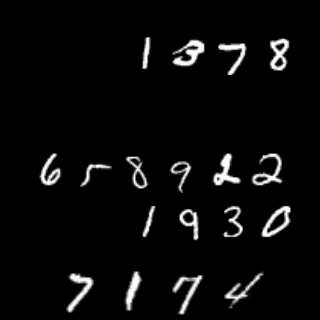 1378
658922
1930
7174